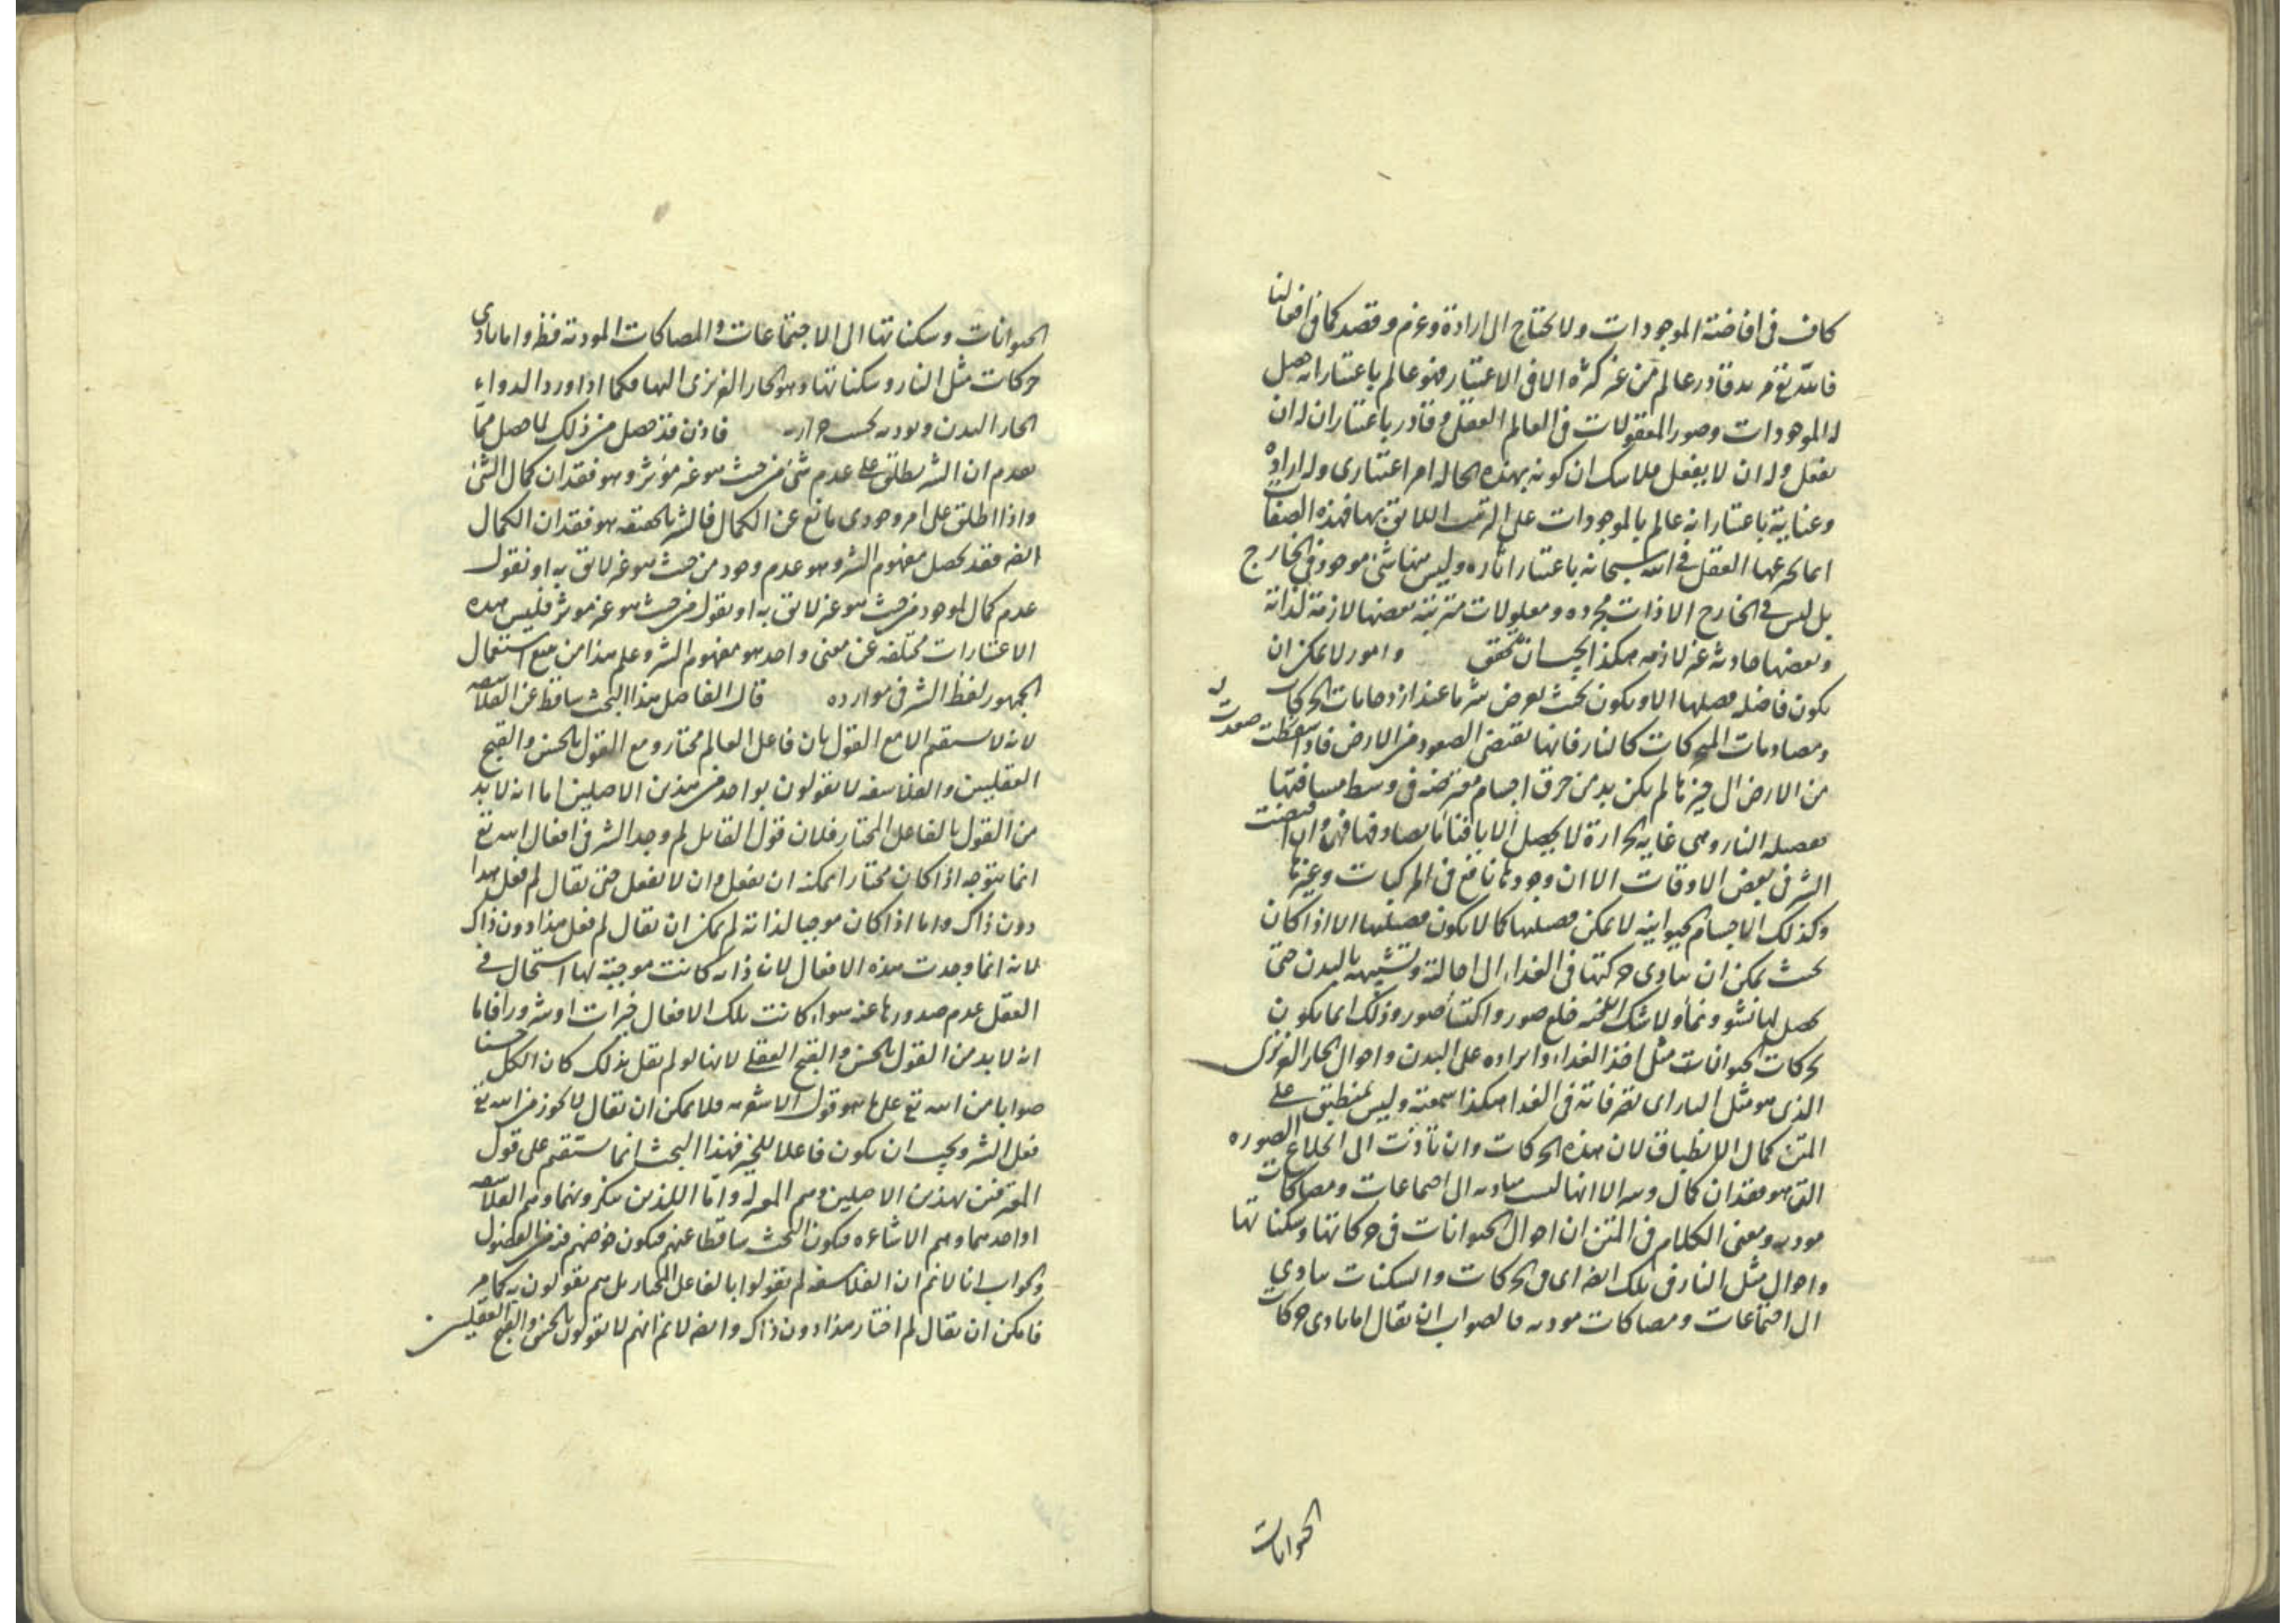 كاف فى افاضة الموجودات ولا يحتاج الى ارادة وعزم وقصد كما فى افعالنا
فالله تع مريد قادر عالم من غير كثرة الا فى الاعتبار فهو عالم باعتبار انه حصل
له الموجودات وصور المعقولات فى العالم العقلى وقادر باعتبار ان له ان
يفعل وله ان لا يفعل فلا شك ان كونه بهذه الحاله امر اعتبارى وله ارادة
وعناية باعتبار انه عالم بالموجودات على الترتيب اللائق بها فهذه الصفات
انما يخترعها العقل فى الله سبحانه باعتبار اثاره وليس منها شئ موجود فى الخارج
بل ليس فى الخارج الا ذات مجرده ومعلولات مترتبة بعضها لازمة لذاته
وبعضها حادثه غير لازمه هكذا يجب ان تحقق وامور لا يمكن ان
يكون فاضله فضيلتها الا ويكون بحيث يعرض شر ما عند ازدحامات الحركات
ومصادمات المتحركات كالنار فانها تقتضى الصعود من الارض فاذا صعدت
من الارض الى حيزها لم يكن بد من خرق اجسام معترضه فى وسط مسافتها
ففضيله النار وهى غاية الحرارة لا يحصل الا بافنائها ما يصادفها فهى وان اقتضت
الشر فى بعض الاوقات الا ان وجودها نافع فى المركبات وغيرها
وكذلك الاجسام الحيوانيه لا يمكن فضيلتها كما لا يكون فضيلتها الا اذا كان
بحيث يمكن ان يتادى حركتها فى الغذاء الى احالته وتشبيهه بالبدن حتى
يحصل لها نشو ونماء ولا شك خلع صور واكتساء صور وذلك انما يكون
بحركات الحيوانات مثل اخذ الغذاء وايراده على البدن واحوال الحار الغريزى
الذى هو مثل النار اى تصرفاته فى الغذا هكذا سمعته وليس بمنطبق على
المتن كمال الانطباق لان هذه الحركات وان تادت الى انخلاع الصوره
التى هو فقدان كمال الا انها ليست متاديه الى اجتماعات ومصاكات
موديه ومعنى الكلام فى المتن ان احوال الحيوانات فى حركاتها وسكناتها
واحوال مثل النار فى تلك ايضا اى فى الحركات والسكنات يتادى
الى اجتماعات ومصاكات موديه فالصواب ان يقال اما تادى حركات
الحيوانات
الحيوانات وسكناتها الى الاجتماعات والمصاكات الموديه فظ واما تادى
حركات مثل النار وسكناتها وهو الحار الغريزى اليها فكما اذا ورد الدواء
الحار البدن ويوديه بحسب حرارته فاذن قد حصل من ذلك لما حصل مما
تقدم ان الشر يطلق على عدم شئ من حيث هو غير مؤثر وهو فقدان كمال الشئ
واذا اطلق على امر وجودى مانع عن الكمال فالشر بالحقيقه هو فقدان الكمال
ايضا فقد تحصل مفهوم الشر وهو عدم وجود من حيث هو غير لائق به او نقول
عدم كمال لموجود من حيث هو غير لائق به او نقول من حيث هو غير موثر فليس هذه
الاعتبارات مختلفه عن معنى واحد هو مفهوم الشر وعلم هذا من تتبع استعمال
الجمهور لفظ الشر فى موارده قال الفاضل هذا البحث ساقط عن الفلاسفه
لانه لا يستقيم الا مع القول بان فاعل العالم مختار ومع القول بالحسن والقبح
العقليين والفلاسفه لا يقولون بواحد من هذين الاصلين اما انه لا بد
من القول بالفاعل المختار فلان قول القائل لم وجد الشر فى افعال الله تع
انما يتوجه اذا كان مختارا يمكنه ان يفعل وان لا يفعل حتى يقال لم فعل هذا
دون ذاك واما اذا كان موجبا لذاته لم يمكن ان يقال لم فعل هذا دون ذاك
لانه انما وجدت هذه الافعال لان ذاته كانت موجبة لها استحال فى
العقل عدم صدورها عنه سواء كانت تلك الافعال خيرات او شرورا فاما
انه لا بد من القول بالحسن والقبح العقلى لانها لو لم نقل بذلك كان الكل حسنا
صوابا من الله تع على ما هو قول الاشعريه فلا يمكن ان يقال لا يجوز من الله تع
فعل الشر ويجب ان يكون فاعلا للخير فهذا البحث انما يستقيم على قول
المعترفين بهذين الاصلين وهم المعتزله واما الذين ينكرونهما وهم الفلاسفه
او احدهما وهم الاشاعره فيكون البحث ساقطا عنهم فيكون خوضهم فيه من الفضول
والجواب انا لا نم ان الفلاسفه لم يقولوا بالفاعل المختار بل هم يقولون به كما مر
فامكن ان يقال لم اختار هذا دون ذاك وايضا لا نم انهم لا يقولون بالحسن والقبح العقليين